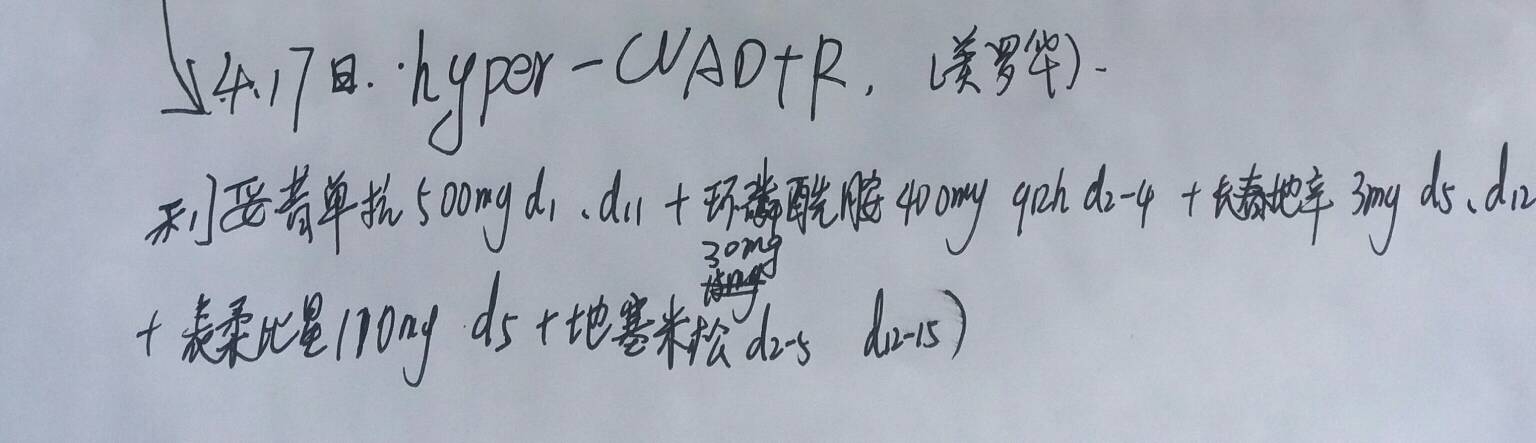 4.17日. hyper-CVAD+R. (美罗华).
利妥昔单抗 500mg d1、d11 + 环磷酰胺 400mg q12h d2-4 + 长春地辛 3mg d5、d12
30mg
+ 表柔比星 110mg d5 + 地塞米松 d2-5 d12-15)